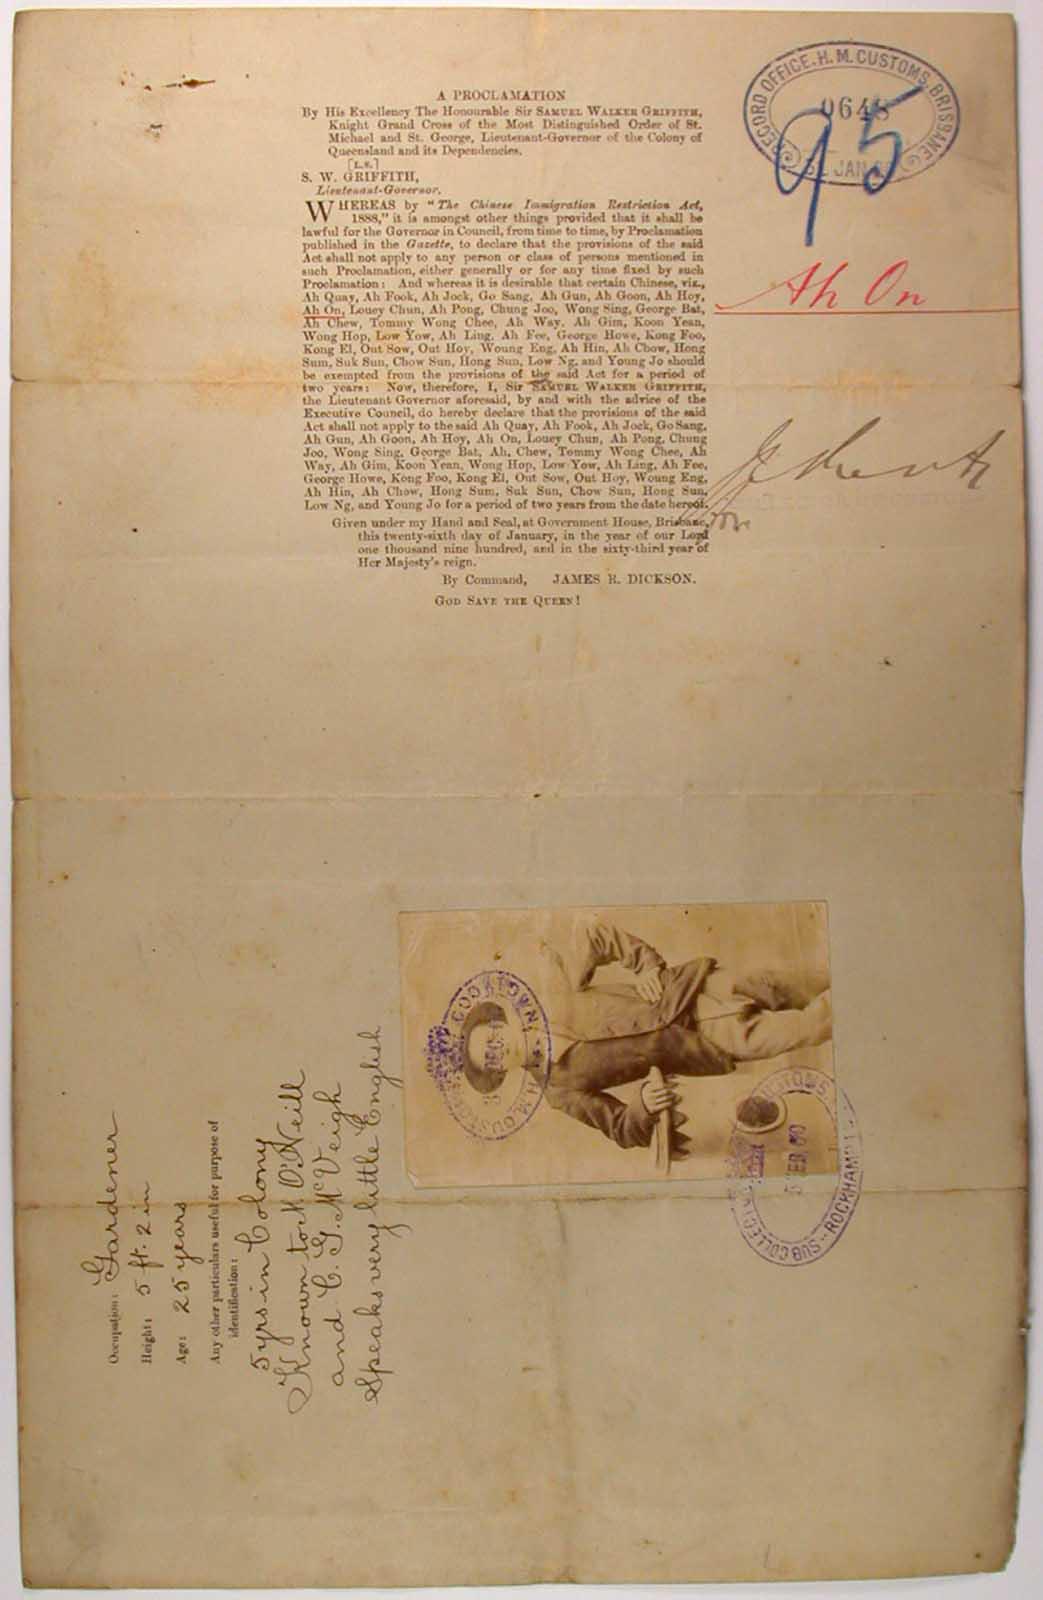 A PROCLAMATION
By His Excellency The Honourable Sir SAMUEL WALKER GRIFFITH,
Knight Grand Cross of the Most Distinguished Order of St.
Michael and St. George, Lieutenant-Governor of the Colony of
Queensland and its Dependencies.
[L.S.]
S. W. GRIFFITH,
Lieutenant-Governor.
WHEREAS by "The Chinese Immigration Restriction Act,
1888," it is amongst other things provided that it shall be
lawful for the Governor in Council, from time to time, by Proclamation
published in the Gazette, to declare that the provisions of the said
Act shall not apply to any person or class of persons mentioned in
such Proclamation, either generally or for any time fixed by such
Proclamation: And whereas it is desirable that certain Chinese, viz.,
Ah Quay, Ah Fook, Ah Jock, Go Sang, Ah Gun, Ah Goon, Ah Hoy,
Ah On, Louey Chun, Ah Pong, Chung Joo, Wong Sing, George Bat,
Ah Chew, Tommy Wong Chee, Ah Way, Ah Gim, Koon Yean,
Wong Hop, Low Yow, Ah Ling, Ah Fee, George Howe, Kong Foo,
Kong El, Out Sow, Out Hoy, Woung Eng, Ah Hin, Ah Chow, Hong
Sum, Suk Sun, Chow Sun, Hong Sun, Low Ng, and Young Jo should
be exempted from the provisions of the said Act for a period of
two years: Now, therefore, I, Sir SAMUEL WALKER GRIFFITH,
the Lieutenant Governor aforesaid, by and with the advice of the
Executive Council, do hereby declare that the provisions of the said
Act shall not apply to the said Ah Quay, Ah Fook, Ah Jock, Go Sang,
Ah Gun, Ah Goon, Ah Hoy, Ah On, Louey Chun, Ah Pong, Chung
Joo, Wong Sing, George Bat, Ah Chew, Tommy Wong Chee, Ah
Way, Ah Gim, Koon Yean, Wong Hop, Low Yow, Ah Ling, Ah Fee,
George Howe, Kong Foo, Kong El, Out Sow, Out Hoy, Woung Eng,
Ah Hin, Ah Chow, Hong Sum, Suk Sun, Chow Sun, Hong Sun,
Low Ng, and Young Jo for a period of two years from the date hereof.
Given under my Hand and Seal, at Government House, Brisbane,
this twenty-sixth day of January, in the year of our Lord
one thousand nine hundred, and in the sixty-third year of
Her Majesty's reign.
By Command, JAMES R. DICKSON.
GOD SAVE THE QUEEN!
RECORD OFFICE. H. M. CUSTOMS, BRISBANE
JAN
95
Ah On
Occupation: Gardener
Height: 5 ft. 2 in
Age: 25 years
Any other particulars useful for purpose of
identification:
5 yrs in Colony
Known to M. O'Neill
and C. G. McVeigh
Speaks very little English
COOKTOWN
H.M. CUSTOMS
SUB COLLECTOR CUSTOMS
FEB 00
ROCKHAMPTON